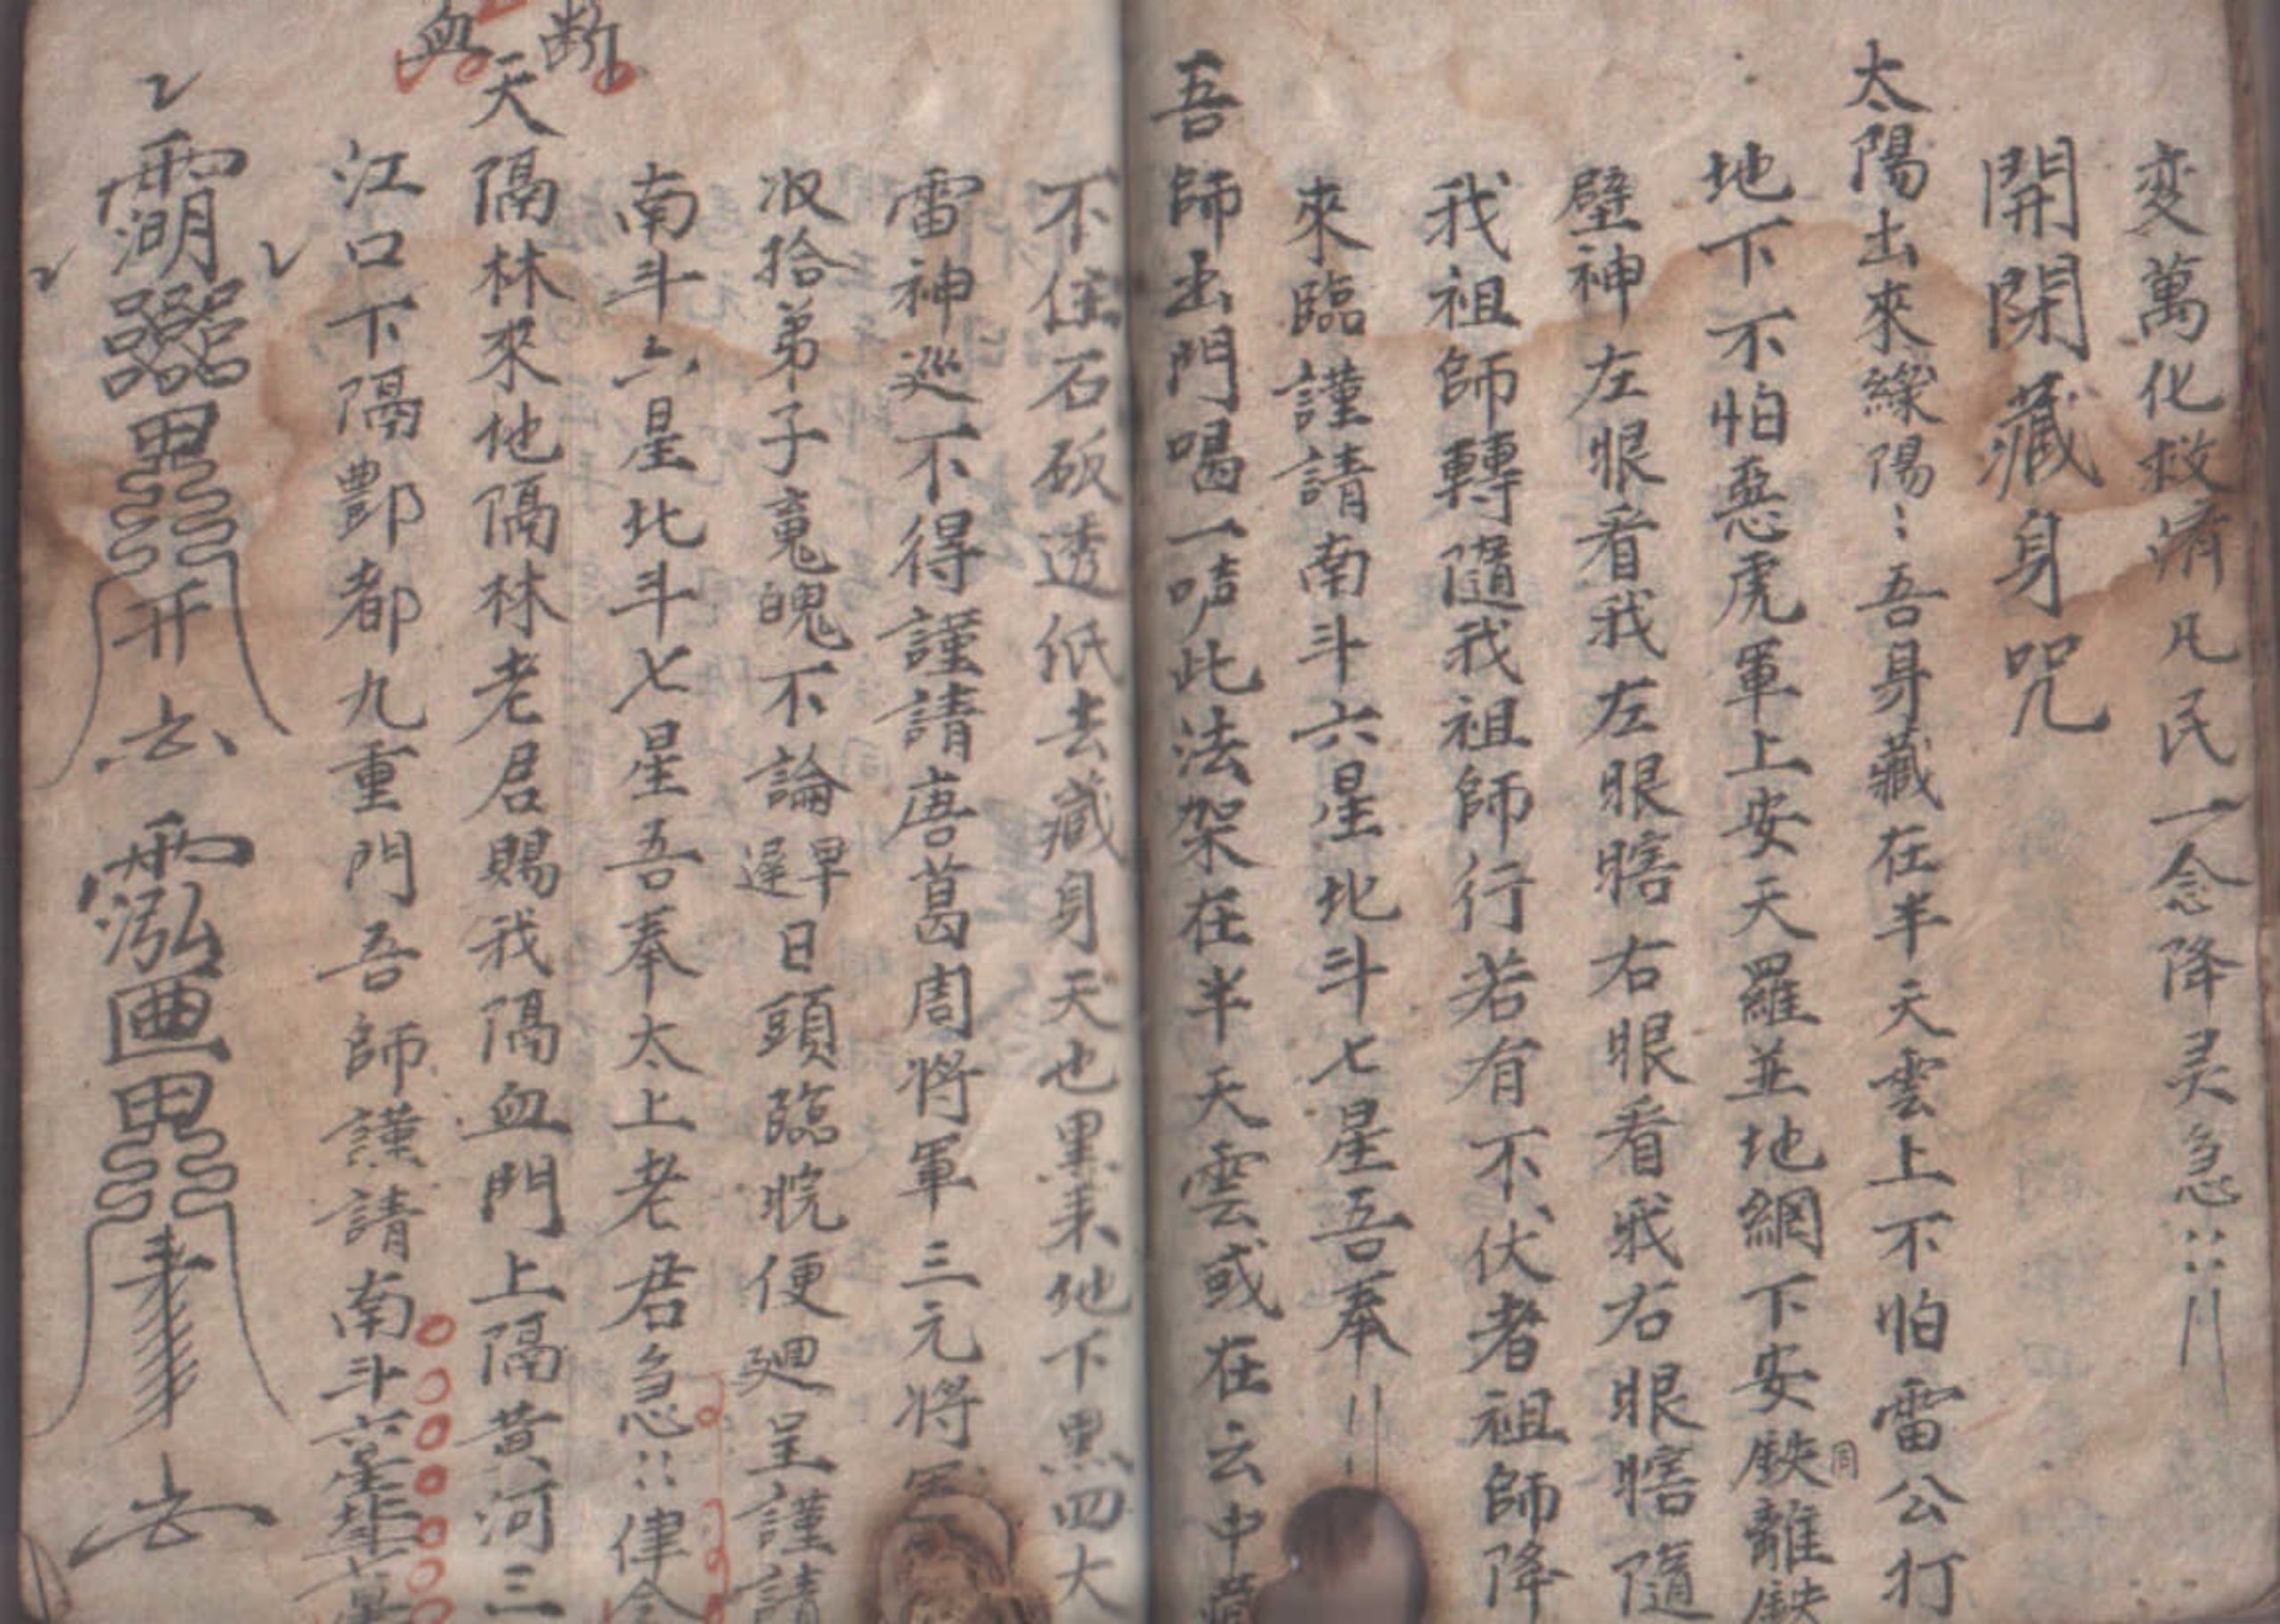 変萬化救済凡民一念降灵急
開閉藏身咒
太陽出來繰陽吾身藏在半天雲上不怕雷公打
地下不怕惡虎軍上安天羅並地網下安鉄周離鉄
壁神左眼看我左眼瞎右眼看我右眼瞎隨
我祖師轉隨我祖師行若有不伏者祖師降
來臨謹請南斗六星北斗七星吾奉
吾師出門喝一声此法架在半天雲或在云中藏
不住石砍透低去藏身天也黑来他下黑四大
雷神巡不得謹請唐葛周将軍三元将軍
收拾弟子䰟魄不論早遲日頭臨晥便廻呈謹請
南斗六星北斗七星吾奉太上老君急律令
断血
天隔林來他隔林老君賜我隔血門上隔黄河三
江口下隔酆都九重門吾師謹請南斗六星
开去
去